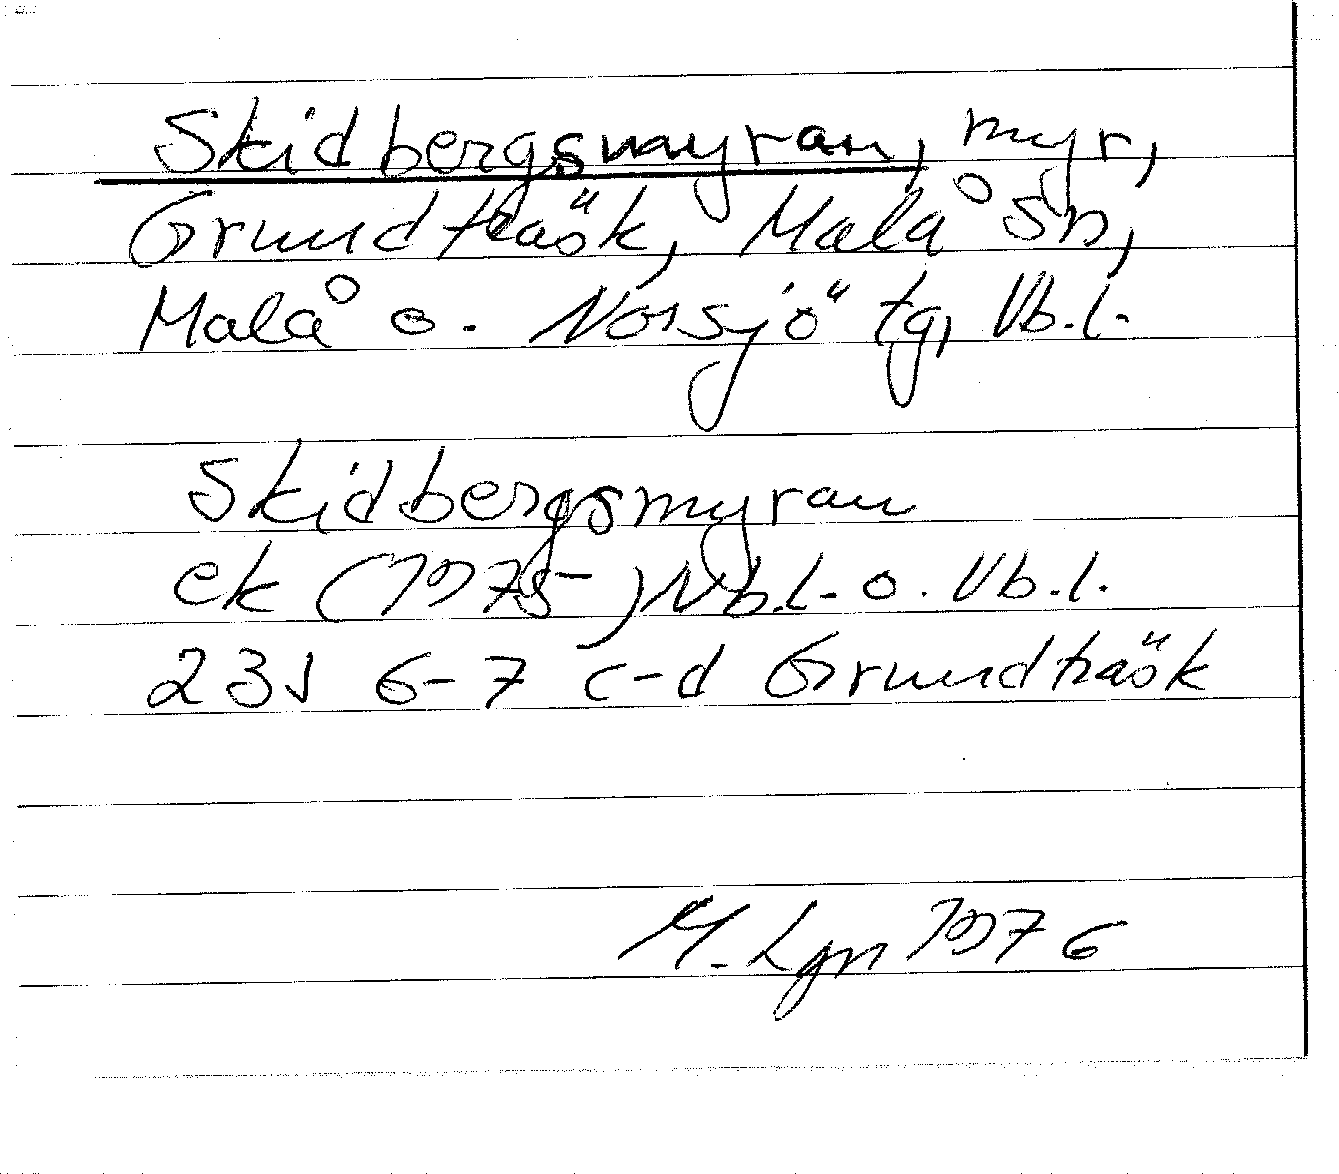 Skidbergsmyran, myr,
Grundträsk, Malå sn,
Malå o. Norsjö tg, Vb.l.
Skidbergsmyran
ek (1975) Nb.l. o. Vb.l.
23J 6-7 c-d Grundträsk
M. Lgn 1976